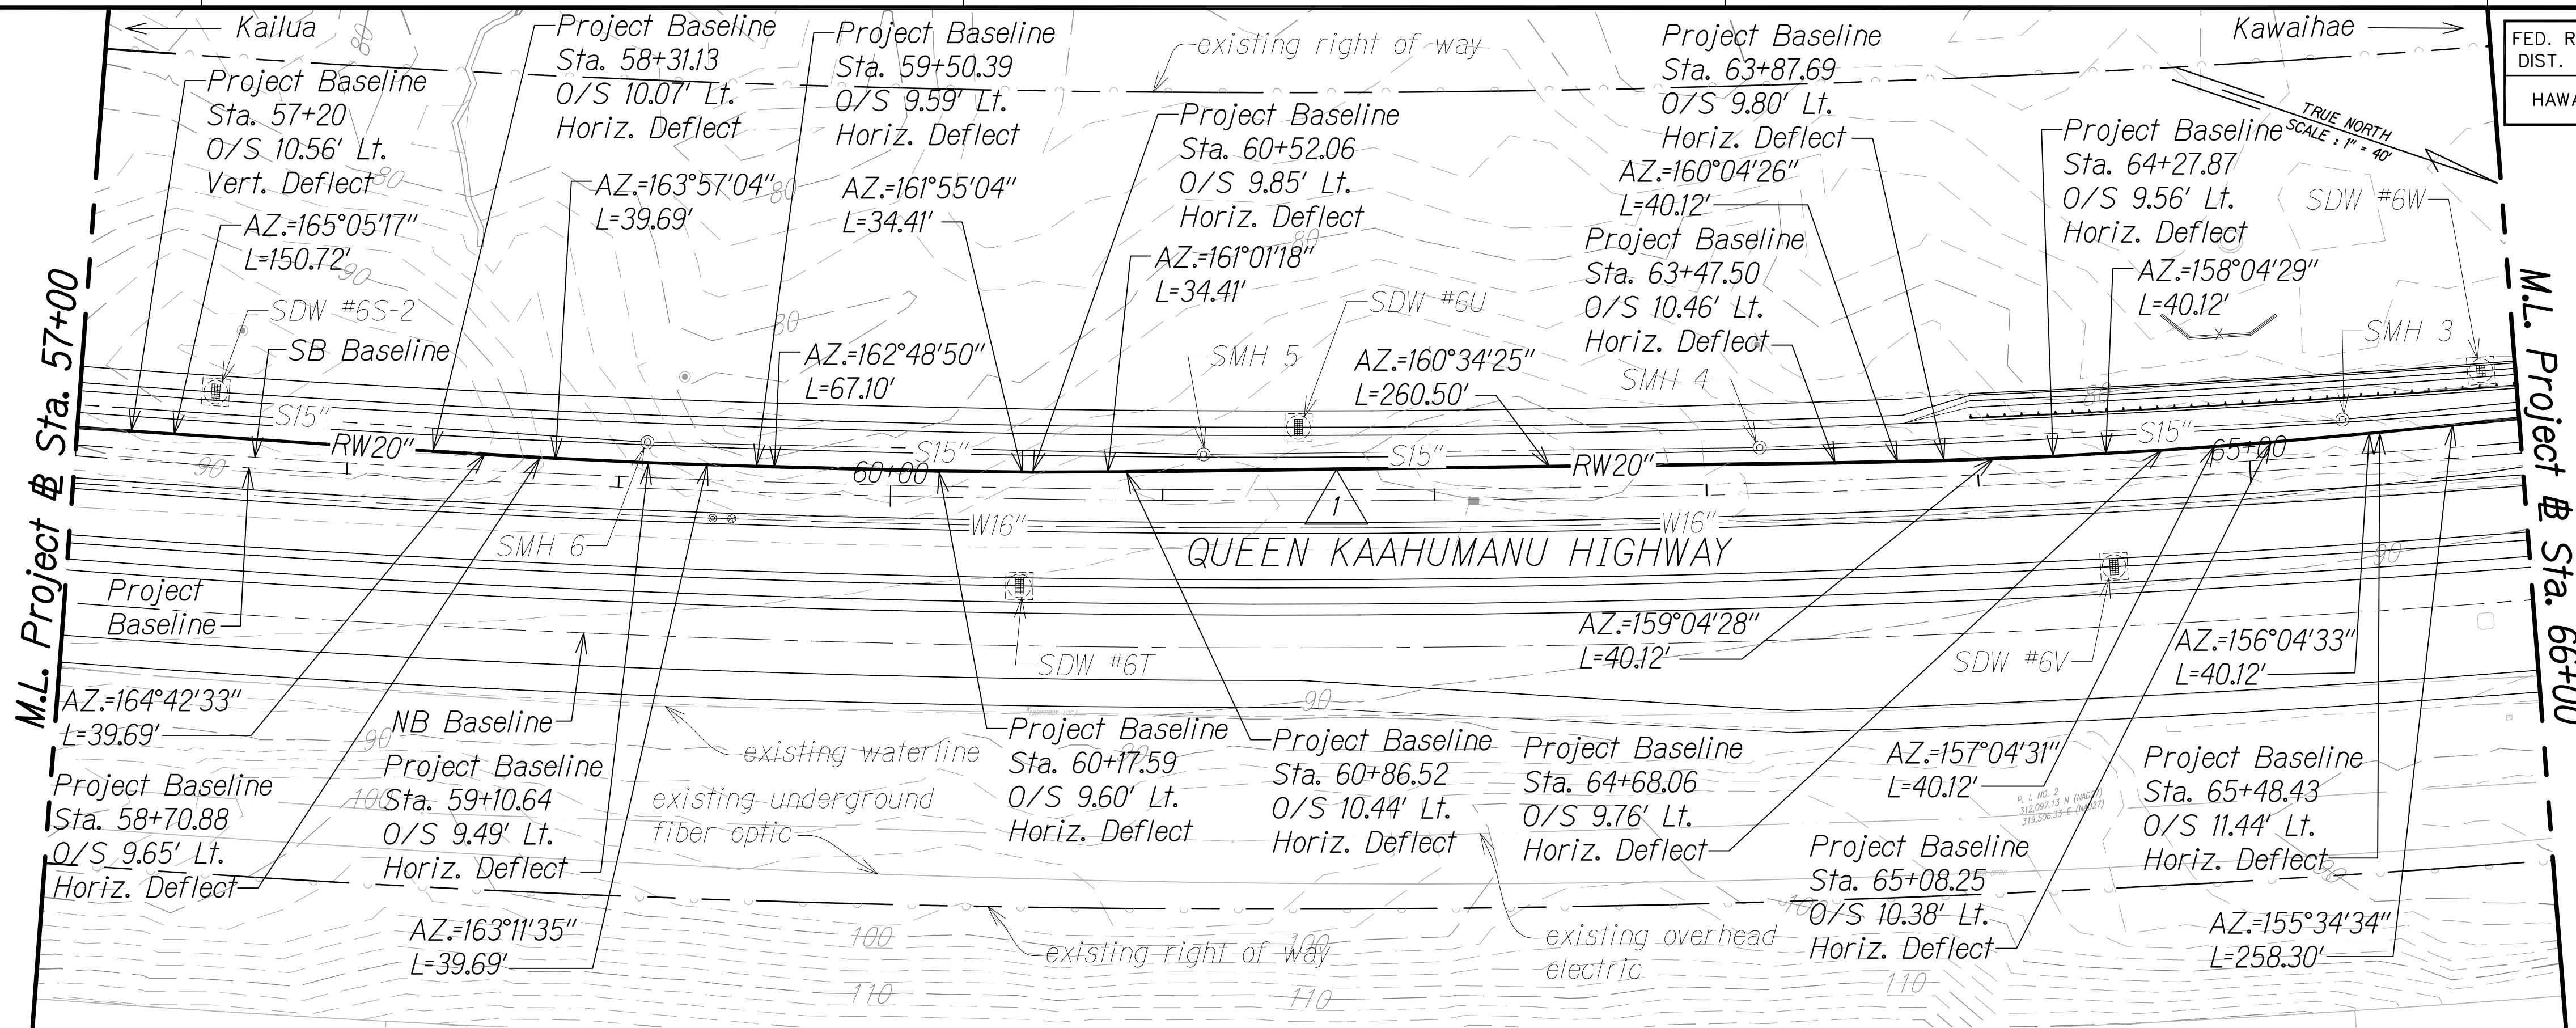 Kailua
Project Baseline
Sta. 57+20
O/S 10.56' Lt.
Vert. Deflect
AZ.=165°05'17"
L=150.72'
SDW #6S-2
SB Baseline
Project Baseline
Sta. 58+31.13
O/S 10.07' Lt.
Horiz. Deflect
AZ.=163°57'04"
L=39.69'
Project Baseline
Sta. 59+50.39
O/S 9.59' Lt.
Horiz. Deflect
AZ.=161°55'04"
L=34.41'
AZ.=162°48'50"
L=67.10'
existing right of way
Project Baseline
Sta. 60+52.06
O/S 9.85' Lt.
Horiz. Deflect
AZ.=161°01'18"
L=34.41'
SDW #6U
SMH 5
AZ.=160°34'25"
L=260.50'
Project Baseline
Sta. 63+87.69
O/S 9.80' Lt.
Horiz. Deflect
AZ.=160°04'26"
L=40.12'
Project Baseline
Sta. 63+47.50
O/S 10.46' Lt.
Horiz. Deflect
SMH 4
Kawaihae
TRUE NORTH
SCALE : 1" = 40'
Project Baseline
Sta. 64+27.87
O/S 9.56' Lt.
Horiz. Deflect
SDW #6W
AZ.=158°04'29"
L=40.12'
SMH 3
FED. R
DIST.
HAWA
80
80
80
90
80
80
80
M.L. Project B Sta. 57+00
M.L. Project B Sta. 66+00
S15"
RW20"
S15"
S15"
RW20"
S15"
90
60+00
65+00
W16"
1
W16"
SMH 6
QUEEN KAAHUMANU HIGHWAY
90
Project
Baseline
SDW #6T
AZ.=159°04'28"
L=40.12'
SDW #6V
AZ.=156°04'33"
L=40.12'
AZ.=164°42'33"
L=39.69'
NB Baseline
90
90
90
existing waterline
Project Baseline
Sta. 58+70.88
O/S 9.65' Lt.
Horiz. Deflect
100
Project Baseline
Sta. 59+10.64
O/S 9.49' Lt.
Horiz. Deflect
AZ.=163°11'35"
L=39.69'
existing underground
fiber optic
Project Baseline
Sta. 60+17.59
O/S 9.60' Lt.
Horiz. Deflect
Project Baseline
Sta. 60+86.52
O/S 10.44' Lt.
Horiz. Deflect
Project Baseline
Sta. 64+68.06
O/S 9.76' Lt.
Horiz. Deflect
AZ.=157°04'31"
L=40.12'
P. I. NO. 2
312,097.13 N (NAD27)
319,506.33 E (NAD27)
Project Baseline
Sta. 65+08.25
O/S 10.38' Lt.
Horiz. Deflect
Project Baseline
Sta. 65+48.43
O/S 11.44' Lt.
Horiz. Deflect
AZ.=155°34'34"
L=258.30'
existing right of way
existing overhead
electric
100
100
110
110
110